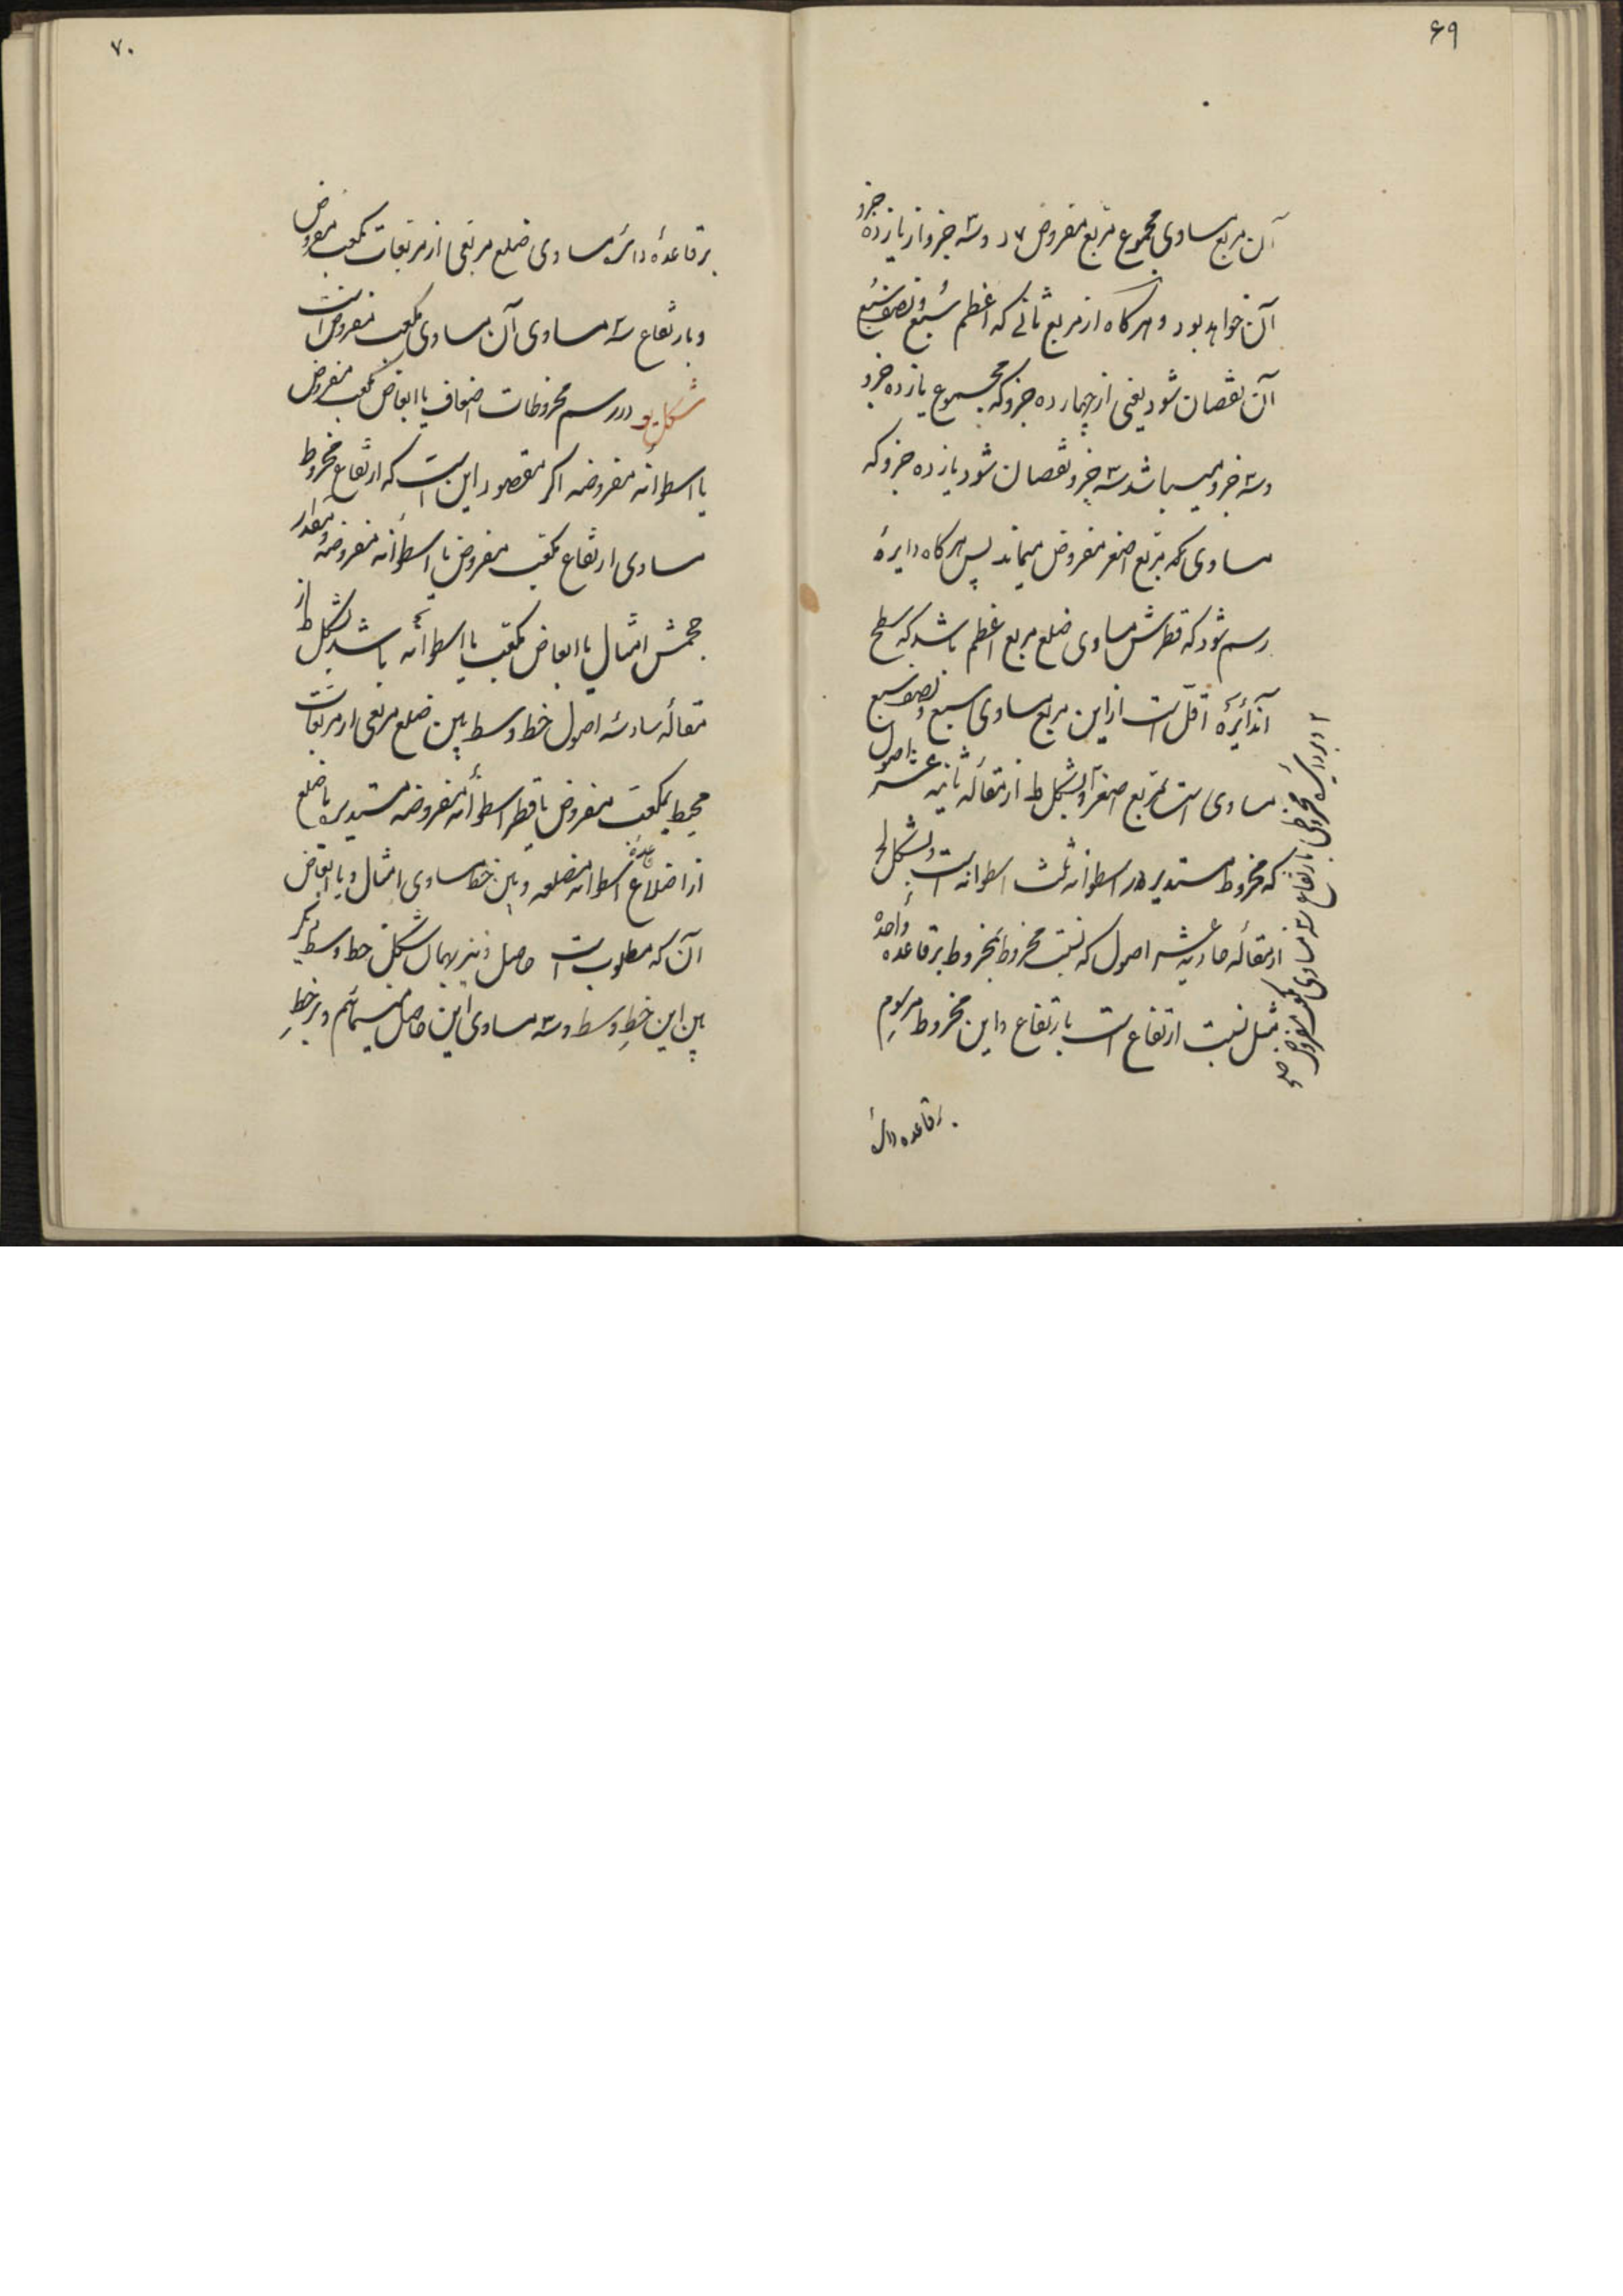 ۶۹
آن مربع مساوی مجموع مربع مفروض و سه جزو از یازده جزو
آن خواهد بود و هرگاه از مربع ثانی که اعظم سبع و نصف سبع
آن نقصان شود یعنی از چهارده جزو که مجموع یازده جزو
و سه جزو میباشد سه جزو نقصان شود یازده جزو که
مساوی مربع اصغر مفروض میماند پس هرگاه دایرهٔ
رسم شود که قطرش مساوی ضلع مربع اعظم باشد که سطح
آندائره اقلّ است از این مربع مساوی سبع و نصف سبع
مساوی است بمربع اصغر و بشکل ط از مقاله ثانیه عشر اصول
که مخروط مستدیر در اسطوانه ثلث اسطوانه است و بشکل
از مقاله حادیه عشر اصول که نسبت مخروط بمخروط بر قاعده واحده
مثل نسبت ارتفاع است بارتفاع و این مخروط مرسوم
بر قاعده دائره
و بر دائره مخروطی بارتفاع سه مساوی مکعب مفروض
۷۰
بر قاعدهٔ دائره مساوی ضلع مربعی از مربعات مکعب مفروض
و بارتفاع سه مساوی آن مساوی مکعب مفروض است
شکل یو در رسم مخروطات اضعاف یا ابعاض مکعب مفروض
یا اسطوانه مفروضه اگر مقصود این است که ارتفاع مخروط
مساوی ارتفاع مکعب مفروض یا اسطوانه مفروضه و مقدار
حجمش امثال یا ابعاض مکعب یا اسطوانه باشد بشکل ط از
مقاله سادسه اصول خط وسط بین ضلع مربعی از مربعات
محیط بمکعب مفروض یا قطر اسطوانه مفروضه مستدیره یا ضلع
از اضلاع قاعدهٔ اسطوانه مضلعه و بین خط مساوی امثال و یا ابعاض
آن که مطلوب است حاصل و نیز بهمان شکل خط وسط دیگر
بین این خطِ وسط و سه مساوی این حاصل مینمائیم و بر خطِ